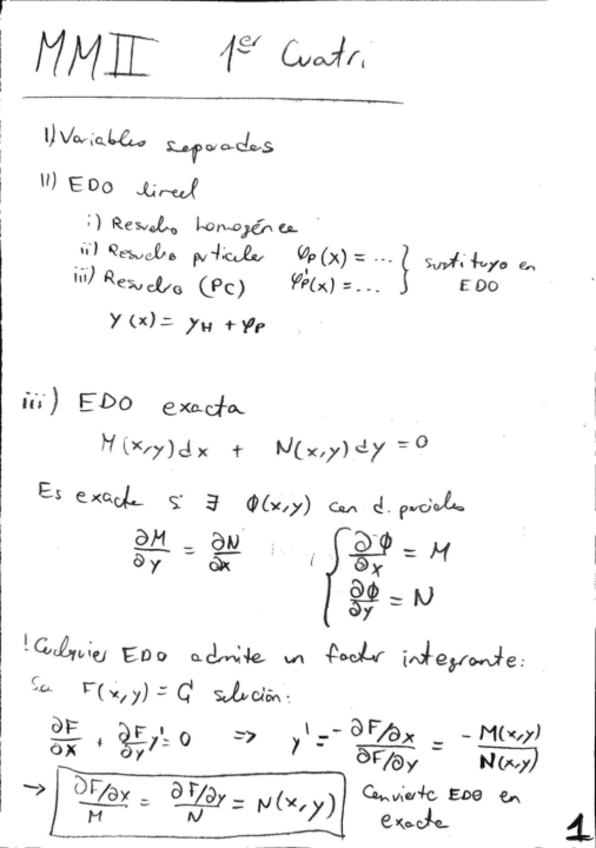 MMII 1er Cuatri.
I) Variables separadas
II) EDO lineal
i) Resuelvo homogénea
ii) Resuelvo particular φp(x) = ...
iii) Resuelvo (PC) φ'p(x) = ... } sustituyo en EDO
y(x) = yH + φp
iii) EDO exacta
M(x,y)dx + N(x,y)dy = 0
Es exacta si ∃ Φ(x,y) con d. parciales
∂M/∂y = ∂N/∂x { ∂Φ/∂x = M
∂Φ/∂y = N
! Cualquier EDO admite un factor integrante:
Sea F(x,y) = C solución:
∂F/∂x + ∂F/∂y y' = 0 => y' = - ∂F/∂x / ∂F/∂y = - M(x,y) / N(x,y)
→ ∂F/∂x / M = ∂F/∂y / N = N(x,y) Convierte EDO en
exacta
1